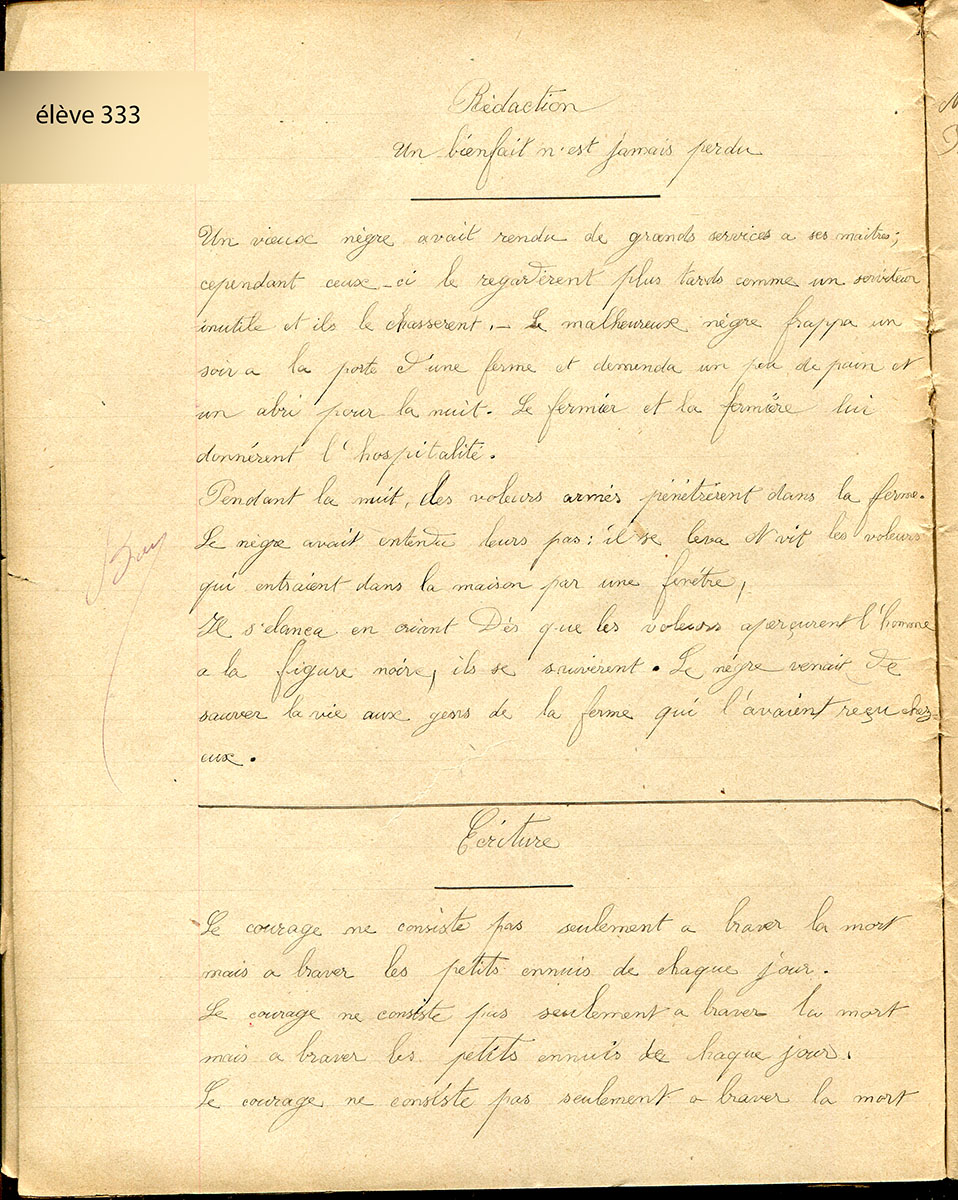 élève 333
Rédaction
Un bienfait n'est jamais perdu
Un vieux nègre avait rendu de grands services a ses maîtres;
cependant ceux-ci le regardèrent plus tards comme un serviteur
inutile et ils le chasserent. - Le malheureux nègre frappa un
soir a la porte d'une ferme et demanda un peu de pain et
un abri pour la nuit. Le fermier et la fermière lui
donnérent l'hospitalité.
Pendant la nuit, des voleurs armés pénétrèrent dans la ferme.
Le nègre avait entendu leurs pas: il se leva et vit les voleurs
qui entraient dans la maison par une fenêtre,
Il s'elanca en criant Dés que les voleurs aperçurent l'homme
a la figure noire, ils se sauvèrent. Le nègre venait de
sauver la vie aux gens de la ferme qui l'avaient reçu chez
eux.
Ecriture
Le courage ne consiste pas seulement a braver la mort
mais a braver les petits ennuis de chaque jour.
Le courage ne consiste pas seulement a braver la mort
mais a braver les petits ennuis de chaque jour.
Le courage ne consiste pas seulement a braver la mort